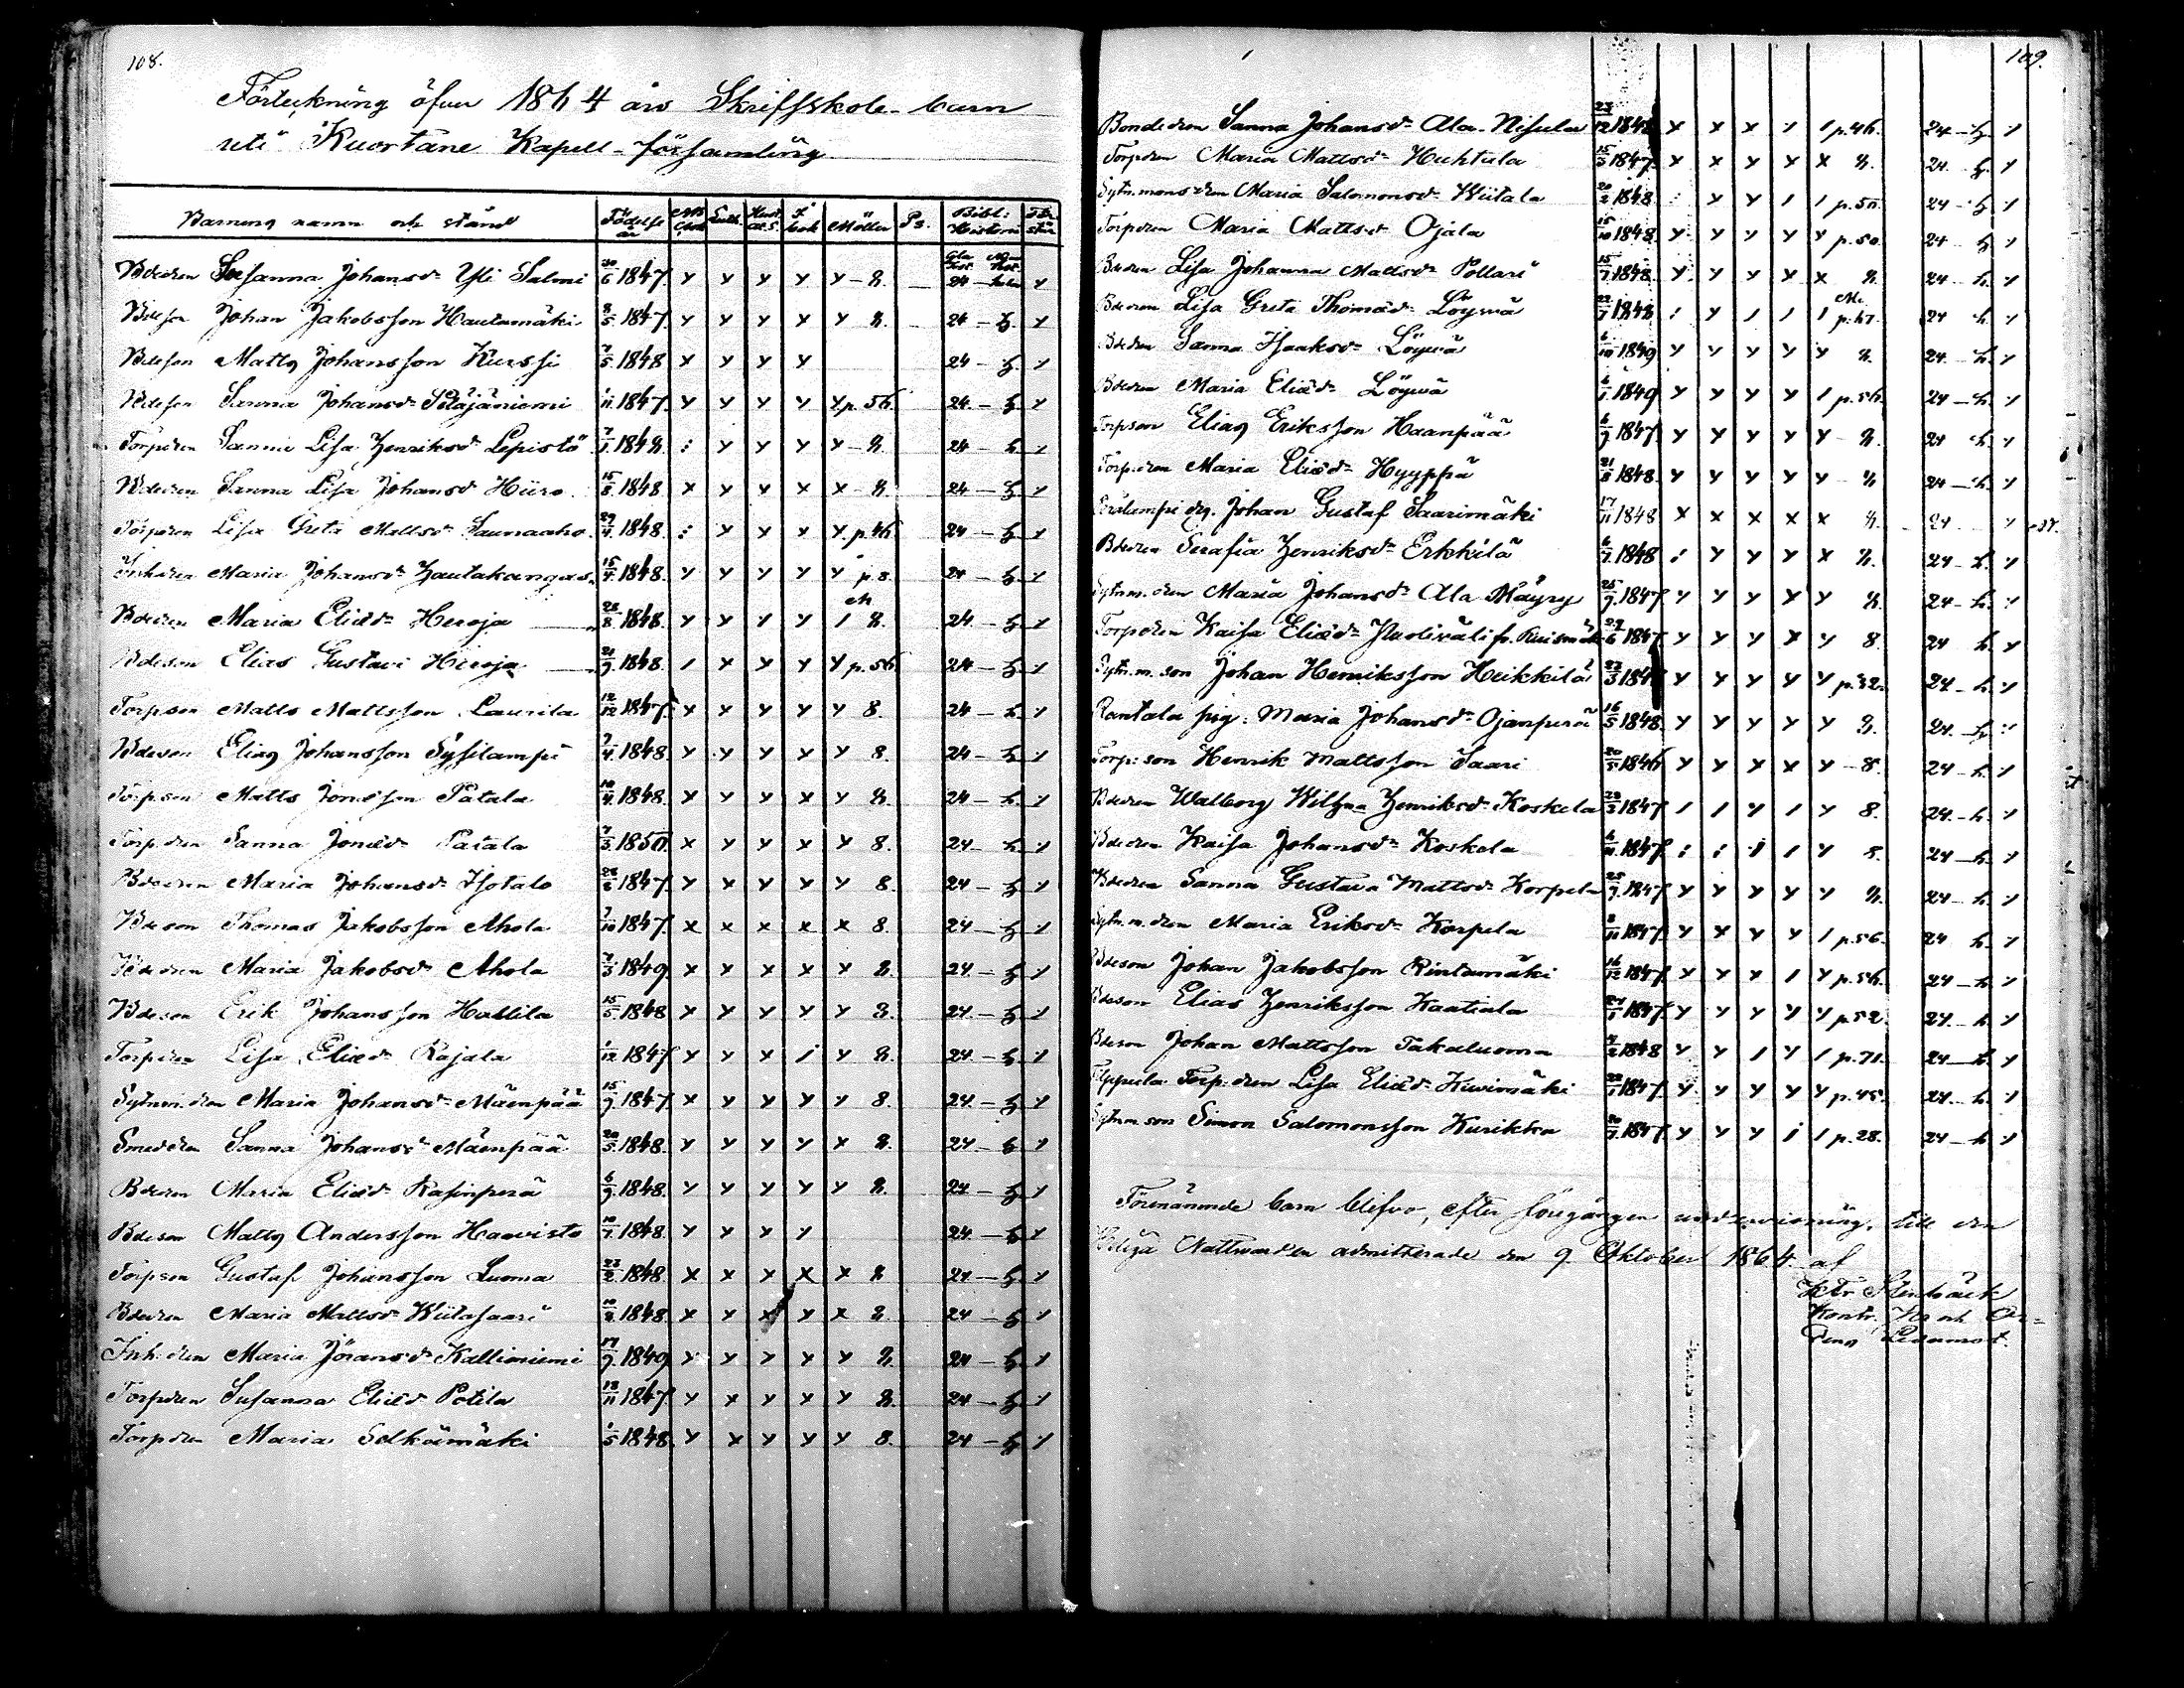 108.
Förteckning öfver 1864 års Skriftskole-barn
uti Kuortane Kapell-församling
Barnens namn och stånd Födelse år ABC bok Luth. Möller Ps. Bibl: Historia
Bdedren Susanna Johansdr Yli Salmi 30/6 1847. y y y y y – 8. 24 y
Bdeson Johan Jakobsson Hautamäki 8/5 1847 y y y x y 8. 24 – h. y
Bdeson Matts Johansson Kurssi 7/5 1848 x y y y 24 – h. y
Sanna Johansdr Pitäjäniemi 1/11 1847. y y y y y p. 56 24. – h y
Torpdren Sanna Lisa Henriksdr Lepistö 7/1 1848. : y y y y – 8. 24 – h y
Bdedren Sanna Lisa Johansd Hiiro 15/8 1848 x y y x x – 8. 24 – h. y
Torpdren Lisa Greta Mattsdr Saunaaho 29/4 1848. : x y y y p. 46 24 – h y
Inhdren Maria Johansdr Hautakangas 15/4 1848. y y y y y p. 8. 24 – h. y
Bdedren Maria Eliædr Heroja 28/8 1848. y y y y / 8. 24. – h y
Bdeson Elias Gustavi Heroja 21/9 1848. / x x y y p. 56 24 – h y
Torpson Matts Mattsson Laurila 12/12 1847. y y y y y 8. 24 – h. y
Bdeson Elias Johansson Sysilampi 7/4 1848 x y y y y 8. 24 – h y
Torpson Matts Jonsson Patala 10/4 1848. x y y x y 8. 24 – h. y
Torp.dren Sanna Jonædr Patala 7/3 1850. x y x x y 8. 24 – h y
Bdedren Maria Johansdr Isotalo 28/6 1847 y x y y y 8. 24 – h y
Bdeson Thomas Jakobsson Ahola 7/10 1847. x x x x x 8. 24 – h y
Bdedren Maria Jakobsdr Ahola 7/3 1849 x x x x y 8. 24 – h y
Bdeson Erik Johansson Hallila 15/5 1848 x y y y y 8. 24. – h y
Torpdren Lisa Eliædr Rajala 1/12 1847 x y x / y 8. 24. – h y
Sytnm.dren Maria Johansdr Mäenpää 15/9 1847 x x y y y 8. 24. – h y
Smeddren Sanna Johansdr Mäenpää 20/5 1848. y y y y x 8. 24 – h y
Bdedren Maria Eliædr Rasinperä 6/9 1848. y y y y y 8. 24 – h y
Bdeson Matts Andersson Haavisto 10/7 1848. y x y y 24 – h y
Torpson Gustaf Johansson Luoma 23/2 1848. x x x x x 8 24 – h y
Bdedren Maria Mattsdr Kiitasaari 10/2 1848 x x x y x 8. 24 – h y
Inh.dren Maria Jöransdr Kallioniemi 17/9 1849 y y y y y 8. 24 – h y
Torpdren Susanna Eliæd Potila 13/11 1847. y x x x x 8. 24 – h y
Torpdren Maria Selkämäki 1/5 1848. y x y y y 8. 24 – h y
109.
Bondedren Sanna Johansdr Ala-Nisula 23/12 1848 y x x y / p. 46. 24 – h y
Torpdren Maria Mattsdr Huhtala 15/3 1847. y x y y x 8. 24. – h. y
Sytn.mansdren Maria Salomonsdr Kiitala 20/2 1848. : x y / / p. 50. 24 – h y
Torpdren Maria Mattsdr Ojala 15/10 1848. y. y y y y p. 50. 24 – h y
Bdedren Lisa Johanna Mattsdr Pollari 15/7 1848. y y y x x 8. 24 – h. y
Bdedren Lisa Greta Thomædr Löywä 22/7 1848 : y / / / p. 47. 24 h. y
Bdedren Sanna Isaaksdr Löywä 6/10 1849 y y y y y 8. 24. – h. y
Bdedren Maria Eliædr Löywä 6/1 1849 y y y y / p. 56. 24 – h. y
Torpson Elias Eriksson Haanpää 6/7 1847. y y y y y – 8. 24 h. y
Torp.dren Maria Eliædr Hyyppä 21/8 1848. y y y y y – 8. 24 – h. y
drg. Johan Gustaf Saarimäki 17/11 1848 x x x x x 8. 24 y
Bdedren Serafia Henriksdr Erkkilä 6/7 1848 : y y y x 8. 24 – h. y
Sytnm.dren Maria Johansdr Ala Mäyry 25/9 1847 y y y x y 8. 24 – h. y
Torpdren Kaisa Eliædr Puolivali fr. Ruismäki 29/6 1847 y y y x y 8. 24 h. y
Sytn.m.son Johan Henriksson Heikkilä 27/3 1847 y y y y y p. 32. 24 – h. y
Rantala pig. Maria Johansdr Ojanperä 16/5 1848. y y y y y 8. 24. – h y
Torp:son Henrik Mattsson Saari 20/5 1846 y y x x y – 8. 24 – h. y
Bdedren Walborg Wilhna Henriksdr Koskela 23/3 1847 / / y / y 8. 24. – h. y
Bdedren Kaisa Johansdr Koskela 6/11 1847. : : j / y 8. 24 – h. y
Bdedren Sanna Gustava Mattsdr Korpela 25/9 1847 y y y y y 8. 24 – h. y
Sytn.m.dren Maria Eriksdr Korpela 8/11 1847 y x y y / p. 56. 24 h. y
Bdeson Johan Jakobsson Rintamäki 16/12 1847 y y x / y p. 56. 24 – h y
Bdeson Elias Henriksson Kaatiala 24/1 1847 y y y y y p. 52. 24. – h y
Bdeson Johan Mattsson Takaluoma 4/2 1848 y y / y / p. 71. 24 – h. y
Uppula Torp.dren Lisa Eliædr Kuvimäki 22/1 1847. y y y y y p. 45. 24. – h. y
Sytnm son Simon Salomonsson Kurikka 20/7 1847 y y y j / p. 28. 24 – h y
Förenämnde barn blefvo, efter föregången undervisning, till den
Heliga Nattvarden admitterade den 9 Oktober 1864 af
K Fr Stenbäck